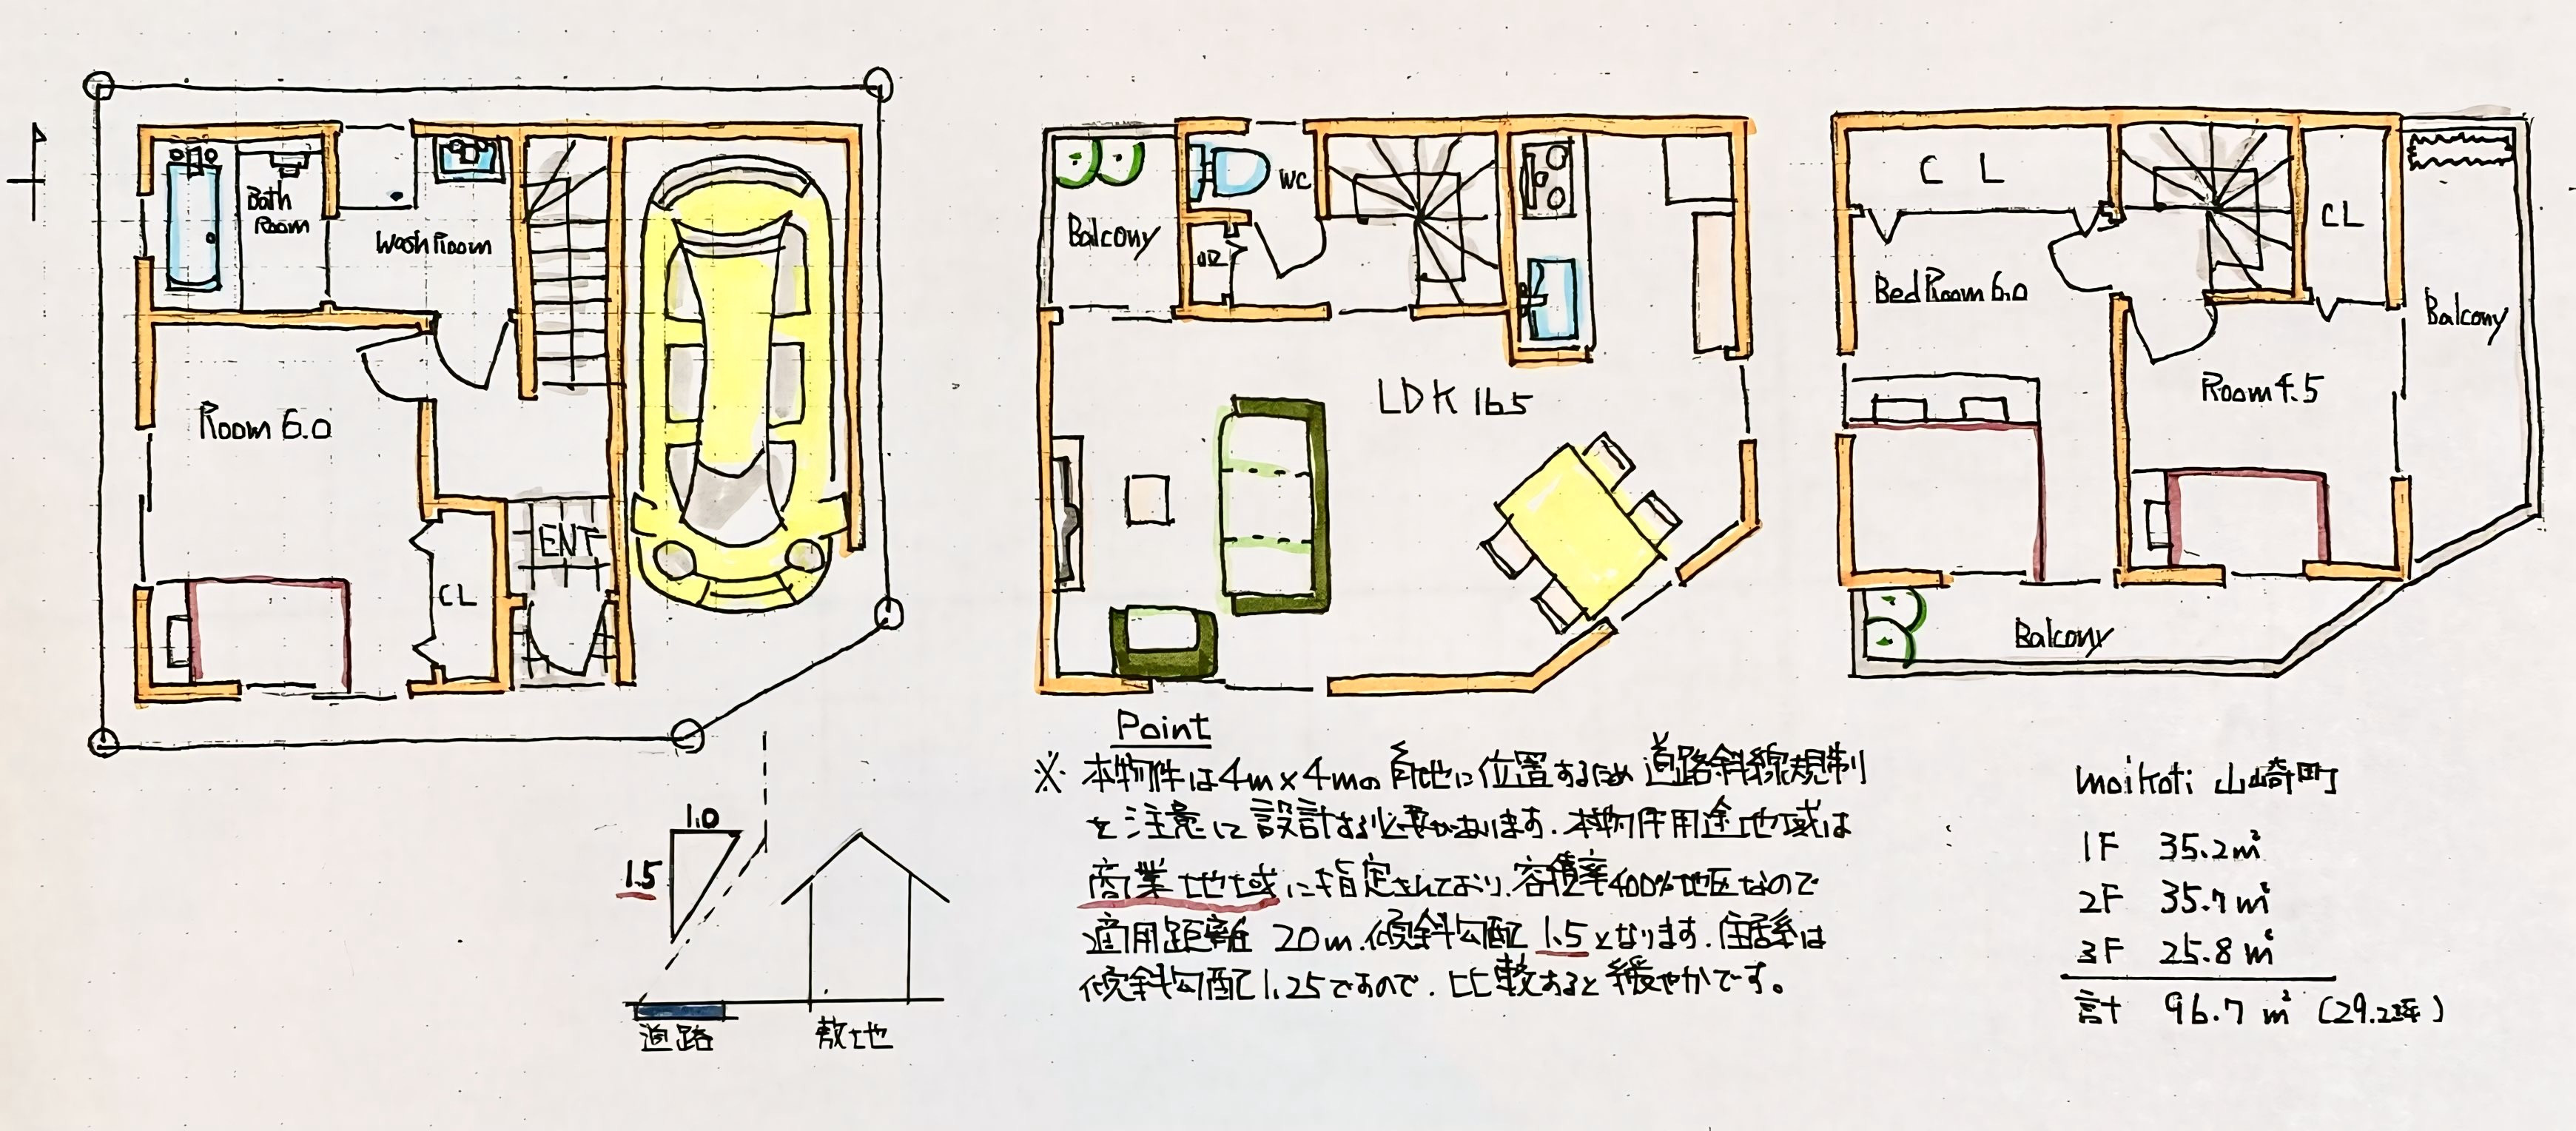 Bath
Room
Wash Room
Room 6.0
ENT
CL
Balcony
WC
LDK 16.5
C L
CL
Bed Room 6.0
Balcony
Room 4.5
Balcony
Point
※ 本物件は4m×4mの角地に位置するため道路斜線規制
を注意して設計する必要があります.本物件用途地域は
商業地域に指定されており.容積率400%地区なので
適用距離 20m.傾斜勾配 1.5となります.住居系は
傾斜勾配1.25ですので.比較すると緩やかです。
1.0
1.5
道路
敷地
山崎町
1F 35.2㎡
2F 35.7㎡
3F 25.8㎡
計 96.7㎡ (29.2坪)